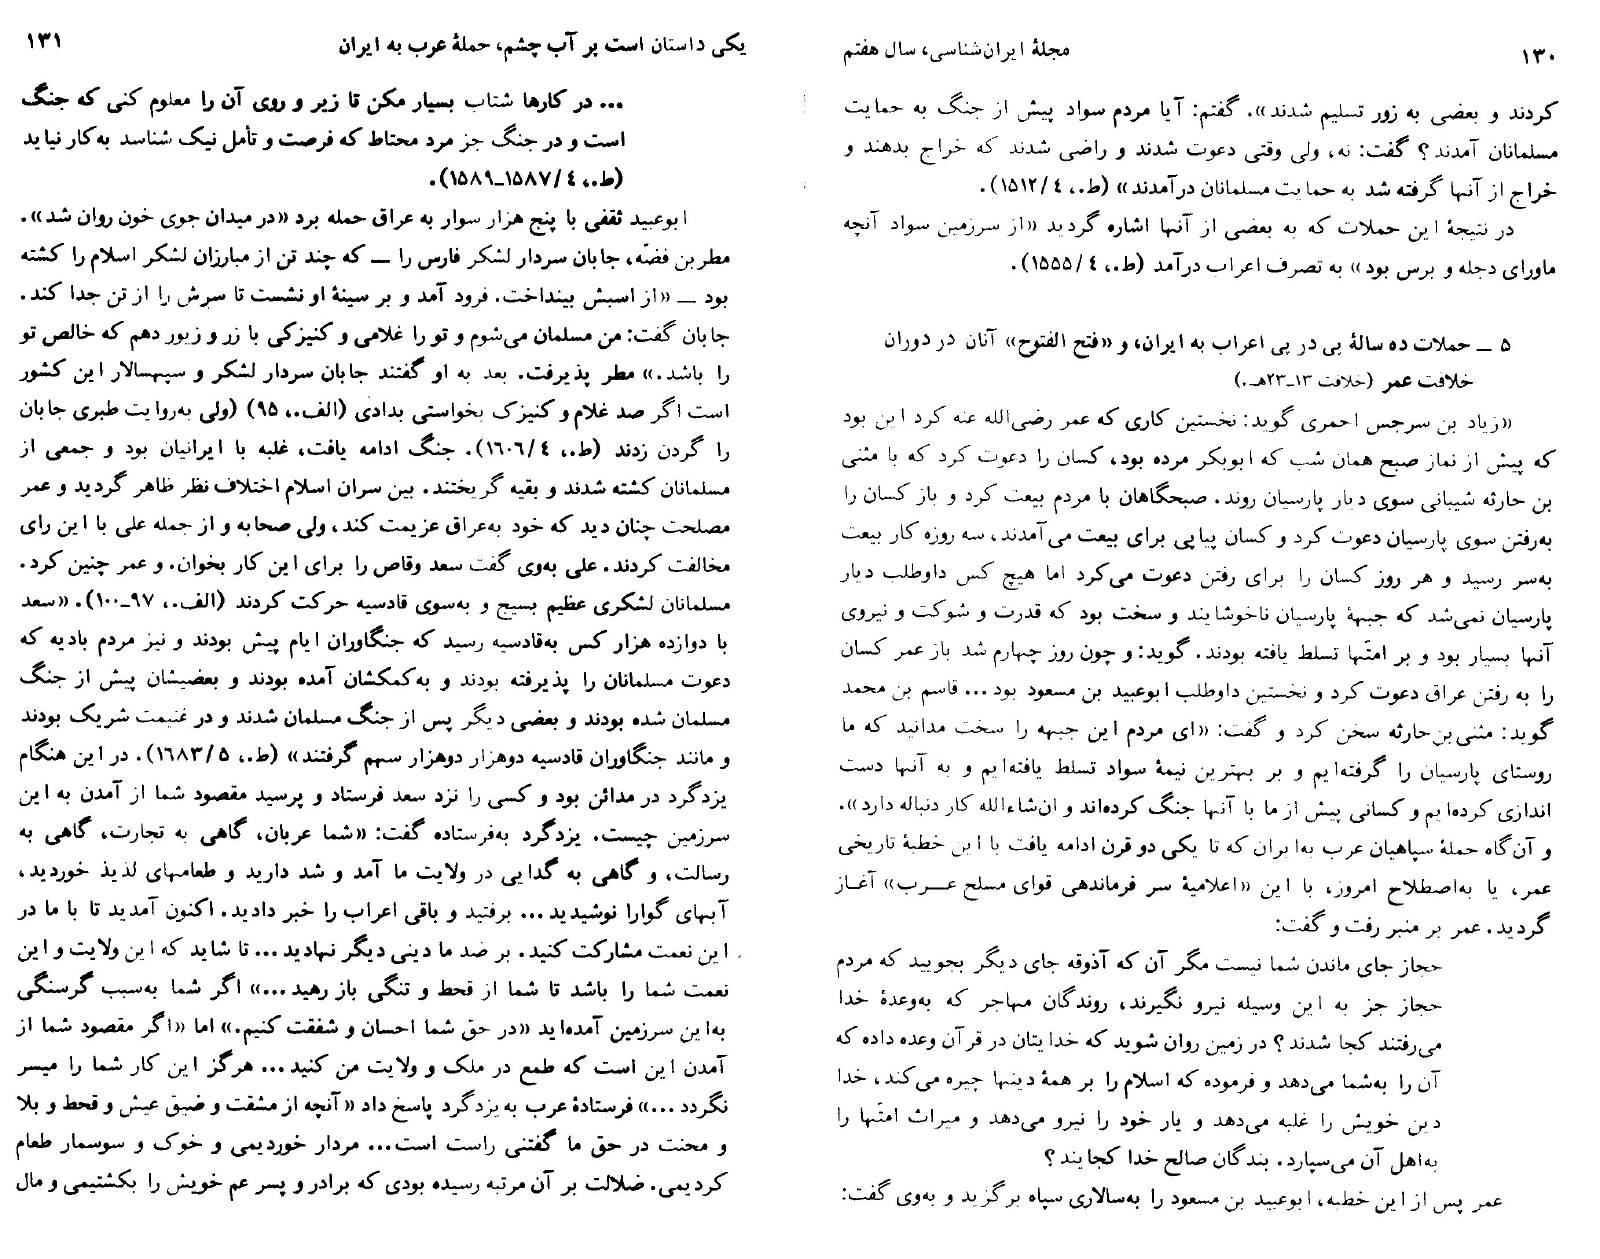 ۱۳۰
مجلهٔ ایران‌شناسی، سال هفتم
کردند و بعضی به زور تسلیم شدند». گفتم: آیا مردم سواد پیش از جنگ به حمایت
مسلمانان آمدند؟ گفت: نه، ولی وقتی دعوت شدند و راضی شدند که خراج بدهند و
خراج از آنها گرفته شد به حمایت مسلمانان درآمدند» (ط.، ۴/۱۵۱۲).
در نتیجهٔ این حملات که به بعضی از آنها اشاره گردید «از سرزمین سواد آنچه
ماورای دجله و برس بود» به تصرف اعراب درآمد (ط.، ۴/۱۵۵۵).
۵ ـ حملات ده سالهٔ پی در پی اعراب به ایران، و «فتح الفتوح» آنان در دوران
خلافت عمر (خلافت ۱۳ـ۲۳هـ.)
«زیاد بن سرجس احمری گوید: نخستین کاری که عمر رضی‌الله عنه کرد این بود
که پیش از نماز صبح همان شب که ابوبکر مرده بود، کسان را دعوت کرد که با مثنی
بن حارثه شیبانی سوی دیار پارسیان روند. صبحگاهان با مردم بیعت کرد و باز کسان را
به‌رفتن سوی پارسیان دعوت کرد و کسان پیاپی برای بیعت می‌آمدند، سه روزه کار بیعت
به‌سر رسید و هر روز کسان را برای رفتن دعوت می‌کرد اما هیچ کس داوطلب دیار
پارسیان نمی‌شد که جبههٔ پارسیان ناخوشایند و سخت بود که قدرت و شوکت و نیروی
آنها بسیار بود و بر امتّها تسلط یافته بودند. گوید: و چون روز چهارم شد باز عمر کسان
را به رفتن عراق دعوت کرد و نخستین داوطلب ابوعبید بن مسعود بود... قاسم بن محمد
گوید: مثنی‌بن‌حارثه سخن کرد و گفت: «ای مردم این جبهه را سخت مدانید که ما
روستای پارسیان را گرفته‌ایم و بر بهترین نیمهٔ سواد تسلط یافته‌ایم و به آنها دست
اندازی کرده‌ایم و کسانی پیش از ما با آنها جنگ کرده‌اند و ان‌شاءالله کار دنباله دارد».
و آن‌گاه حملهٔ سپاهیان عرب به‌ایران که تا یکی دو قرن ادامه یافت با این خطبهٔ تاریخی
عمر، یا به‌اصطلاح امروز، با این «اعلامیهٔ سر فرماندهی قوای مسلح عـــرب» آغـاز
گردید. عمر بر منبر رفت و گفت:
حجاز جای ماندن شما نیست مگر آن که آذوقه جای دیگر بجویید که مردم
حجاز جز به این وسیله نیرو نگیرند، روندگان مهاجر که به‌وعدهٔ خدا
می‌رفتند کجا شدند؟ در زمین روان شوید که خدایتان در قرآن وعده داده که
آن را به‌شما می‌دهد و فرموده که اسلام را بر همهٔ دینها چیره می‌کند، خدا
دین خویش را غلبه می‌دهد و یار خود را نیرو می‌دهد و میراث امتّها را
به‌اهل آن می‌سپارد. بندگان صالح خدا کجایند؟
عمر پس از این خطبه، ابوعبید بن مسعود را به‌سالاری سپاه برگزید و به‌وی گفت:
یکی داستان است پر آب چشم، حملهٔ عرب به ایران
۱۳۱
... در کارها شتاب بسیار مکن تا زیر و روی آن را معلوم کنی که جنگ
است و در جنگ جز مرد محتاط که فرصت و تأمل نیک شناسد به‌کار نیاید
(ط.، ۴/۱۵۸۷ـ۱۵۸۹).
ابوعبید ثقفی با پنج هزار سوار به عراق حمله برد «در میدان جوی خون روان شد».
مطربن فضّه، جابان سردار لشکر فارس را ــ که چند تن از مبارزان لشکر اسلام را کشته
بود ــ «از اسبش بینداخت. فرود آمد و بر سینهٔ او نشست تا سرش را از تن جدا کند.
جابان گفت: من مسلمان می‌شوم و تو را غلامی و کنیزکی با زر و زیور دهم که خالص تو
را باشد.» مطر پذیرفت. بعد به او گفتند جابان سردار لشکر و سپهسالار این کشور
است اگر صد غلام و کنیزک بخواستی بدادی (الف.، ۹۵) (ولی به‌روایت طبری جابان
را گردن زدند (ط.، ۴/۱۶۰۶). جنگ ادامه یافت، غلبه با ایرانیان بود و جمعی از
مسلمانان کشته شدند و بقیه گریختند. بین سران اسلام اختلاف نظر ظاهر گردید و عمر
مصلحت چنان دید که خود به‌عراق عزیمت کند، ولی صحابه و از جمله علی با این رای
مخالفت کردند. علی به‌وی گفت سعد وقاص را برای این کار بخوان. و عمر چنین کرد.
مسلمانان لشکری عظیم بسیج و به‌سوی قادسیه حرکت کردند (الف.، ۹۷ـ۱۰۰). «سعد
با دوازده هزار کس به‌قادسیه رسید که جنگاوران ایام پیش بودند و نیز مردم بادیه که
دعوت مسلمانان را پذیرفته بودند و به‌کمکشان آمده بودند و بعضیشان پیش از جنگ
مسلمان شده بودند و بعضی دیگر پس از جنگ مسلمان شدند و در غنیمت شریک بودند
و مانند جنگاوران قادسیه دوهزار دوهزار سهم گرفتند» (ط.، ۵/۱۶۸۳). در این هنگام
یزدگرد در مدائن بود و کسی را نزد سعد فرستاد و پرسید مقصود شما از آمدن به این
سرزمین چیست. یزدگرد به‌فرستاده گفت: «شما عربان، گاهی به تجارت، گاهی به
رسالت، و گاهی به گدایی در ولایت ما آمد و شد دارید و طعامهای لذیذ خوردید،
آبهای گوارا نوشیدید... برفتید و باقی اعراب را خبر دادید. اکنون آمدید تا با ما در
این نعمت مشارکت کنید. بر ضد ما دینی دیگر نهادید... تا شاید که این ولایت و این
نعمت شما را باشد تا شما از قحط و تنگی باز رهید...» اگر شما به‌سبب گرسنگی
به‌این سرزمین آمده‌اید «در حق شما احسان و شفقت کنیم.» اما «اگر مقصود شما از
آمدن این است که طمع در ملک و ولایت من کنید... هرگز این کار شما را میسر
نگردد...» فرستادهٔ عرب به‌یزدگرد پاسخ داد «آنچه از مشقت و ضیق عیش و قحط و بلا
و محنت در حق ما گفتنی راست است... مردار خوردیمی و خوک و سوسمار طعام
کردیمی. ضلالت بر آن مرتبه رسیده بودی که برادر و پسر عم خویش را بکشتیمی و مال